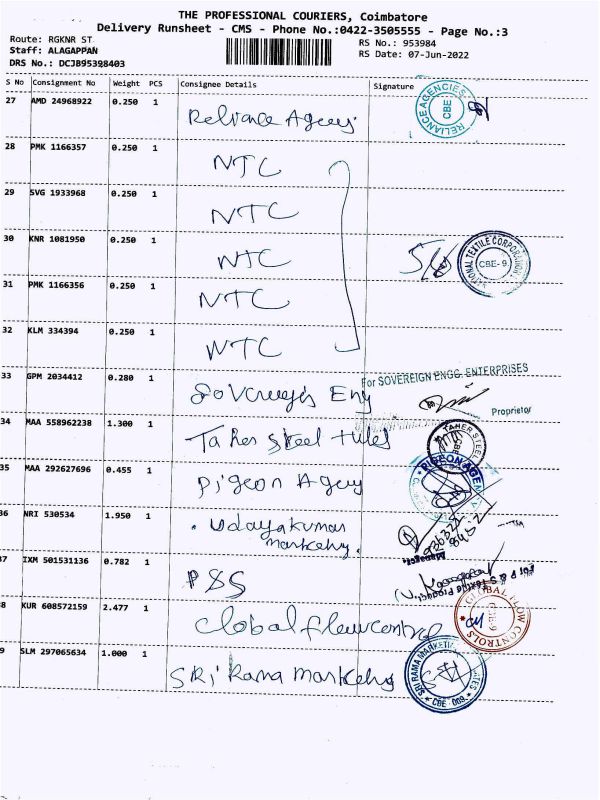 THE PROFESSIONAL COURIERS, Coimbatore
Delivery Runsheet - CMS - Phone No.:0422-3505555 - Page No.:3
Route: RGKNR ST
Staff: ALAGAPPAN
DRS No.: DCJB95398403
RS No.: 953984
RS Date: 07-Jun-2022
S No Consignment No Weight PCS Consignee Details Signature
27 AMD 24968922 0.250 1 Reliance Agency
RELIANCE AGENCIES CBE
28 PMK 1166357 0.250 1 NTC
29 SVG 1933968 0.250 1 NTC
30 KNR 1081950 0.250 1 NTC
NATIONAL TEXTILE CORPORATION CBE-9
31 PMK 1166356 0.250 1 NTC
32 KLM 334394 0.250 1 NTC
33 GPM 2034412 0.280 1 Sovereign Eng
For SOVEREIGN ENGG. ENTERPRISES
Proprietor
34 MAA 558962238 1.300 1 Taher Steel tubes
TAHER STEEL
35 MAA 292627696 0.455 1 Pigeon Agency
36 NRI 530534 1.950 1 Udayakumar
Marketing.
Manager.
37 IXM 501531136 0.782 1 P&S
For P & S Textile Products
38 KUR 608572159 2.477 1 Global flow control
GLOBAL FLOW CONTROLS CBE-9
39 SLM 297065634 1.000 1 SRi Rama Marketing
SRI RAMA MARKETING CBE-009